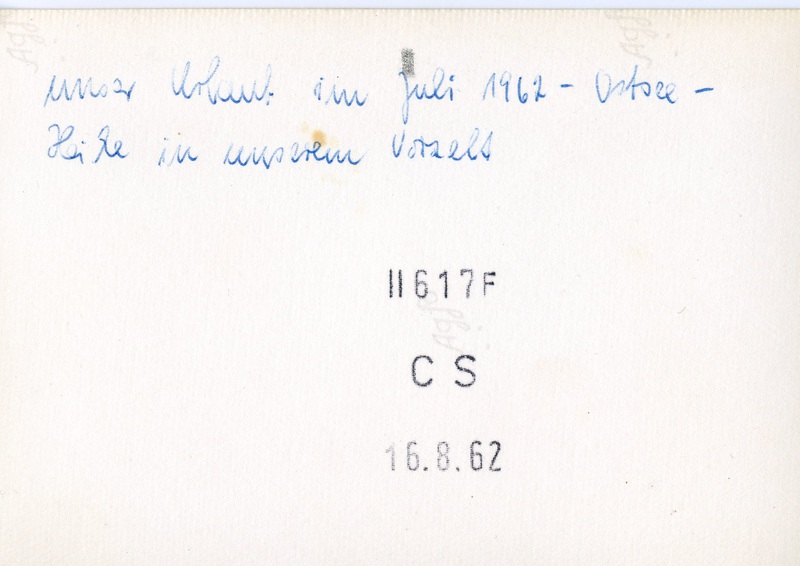 unser Urlaub im Juli 1962 - Ostsee -
Heike in unserem Vorzelt
II617F
C S
16.8.62